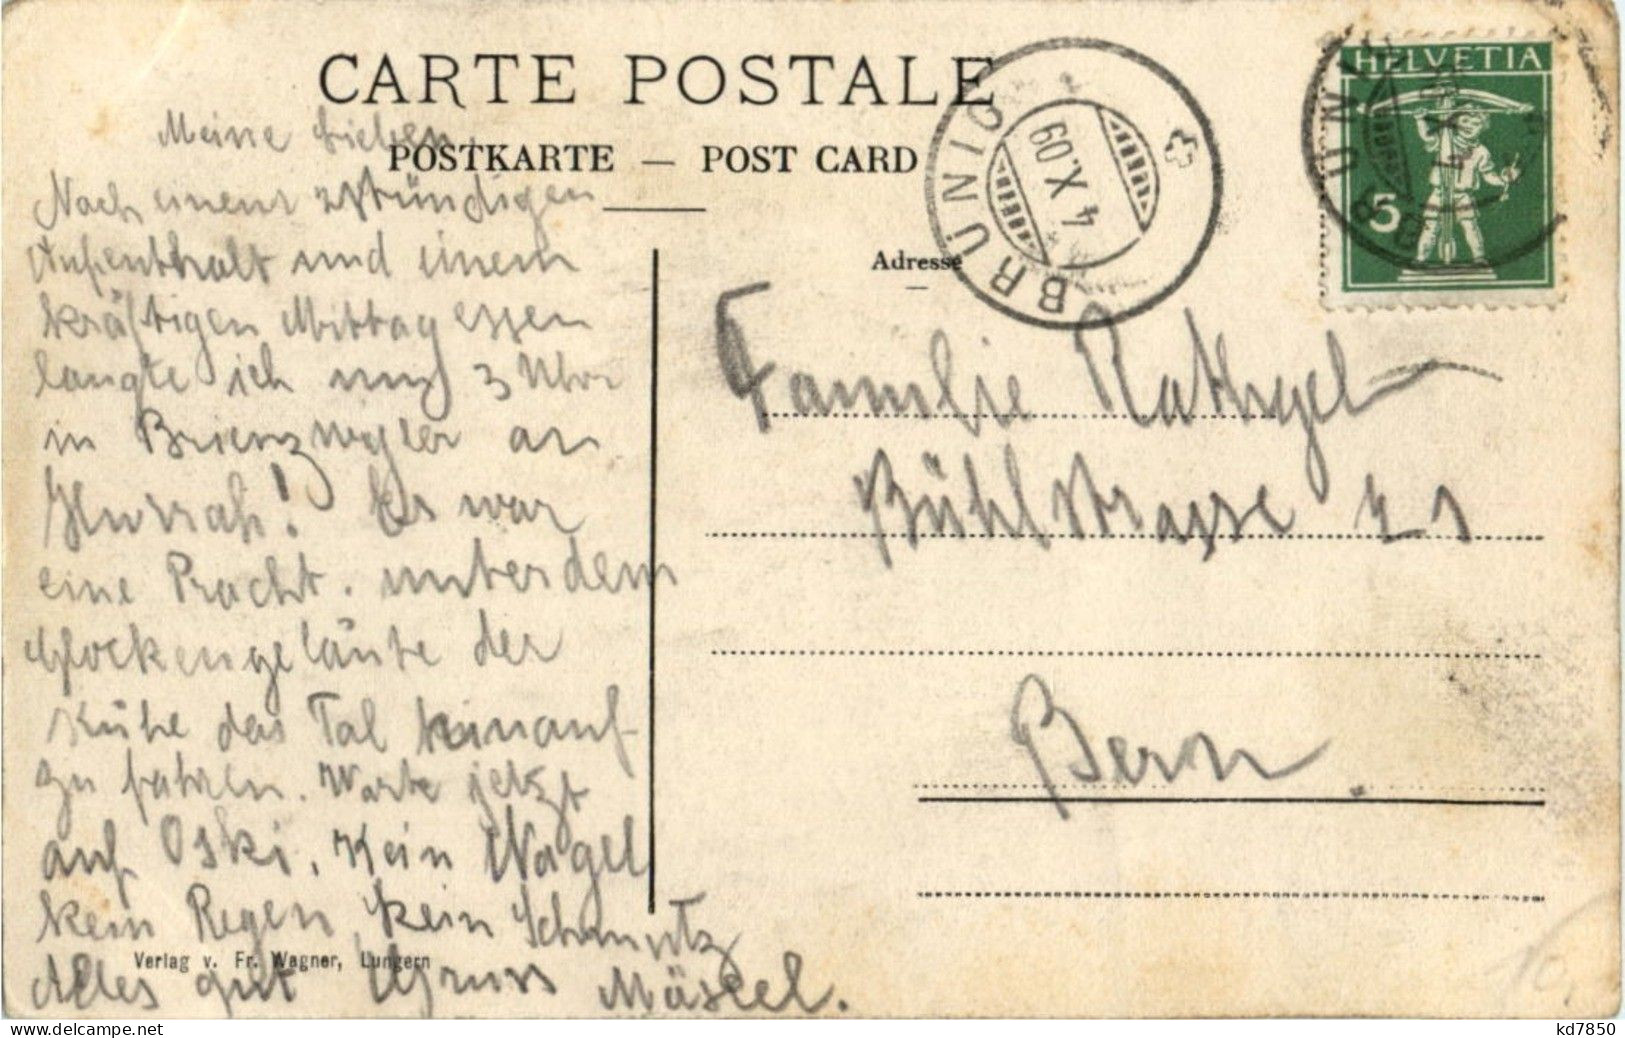 CARTE POSTALE
POSTKARTE — POST CARD
Meine Lieben
Nach einem 2stündigen
Aufenthalt und einem
kräftigen Mittagessen
langte ich um 3 Uhr
in Brienzwyler an
Hurrah! Es war
eine Pracht. unter dem
Glockengeläute der
Kühe das Tal hinauf-
zu fahren. Warte jetzt
auf Oski. Kein Nagel
kein Regen, kein Schmutz
Alles gut Gruss
Verlag v. Fr. Wagner, Lungern
Adresse
Familie Rathgeb
Bühlstrasse 21
Bern.
BRÜNIG
4.X.09
HELVETIA
5
BRÜNIG
10.
kd7850
www.delcampe.net